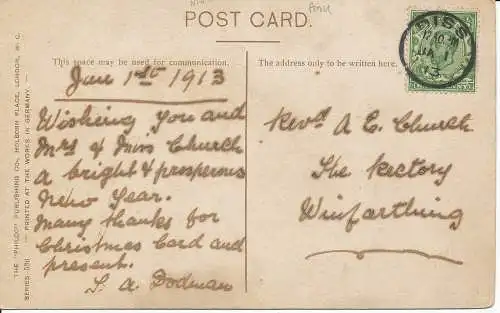 POST CARD.
This space may be used for communication.
The address only to be written here.
DISS
JA 1
13
Jan 1st 1913
Wishing you and
Mrs & Miss Church
a bright & prosperous
New Year.
Many thanks for
Christmas Card and
present.
S. A. Dodman
Revd A E. Church
The Rectory
Winfarthing
THE "PHILCO" PUBLISHING CO., HOLBORN PLACE, LONDON, W. C.
PRINTED AT THE WORKS IN GERMANY.